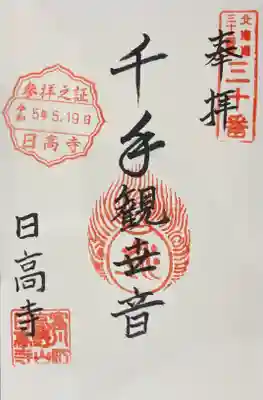 北海道
三十三
三十番
奉拝
千手観世音
参拝之証
令和
5年5.19日
日高寺
日高寺